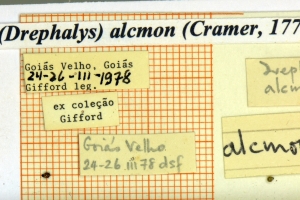 (Drephalys) alcmon (Cramer, 177
Goiás Velho, Goiás
24-26-III-1978
Gifford leg.
ex coleção
Gifford
Goiás Velho
24-26 III 78 dsf
Drep
alcm
alcmo